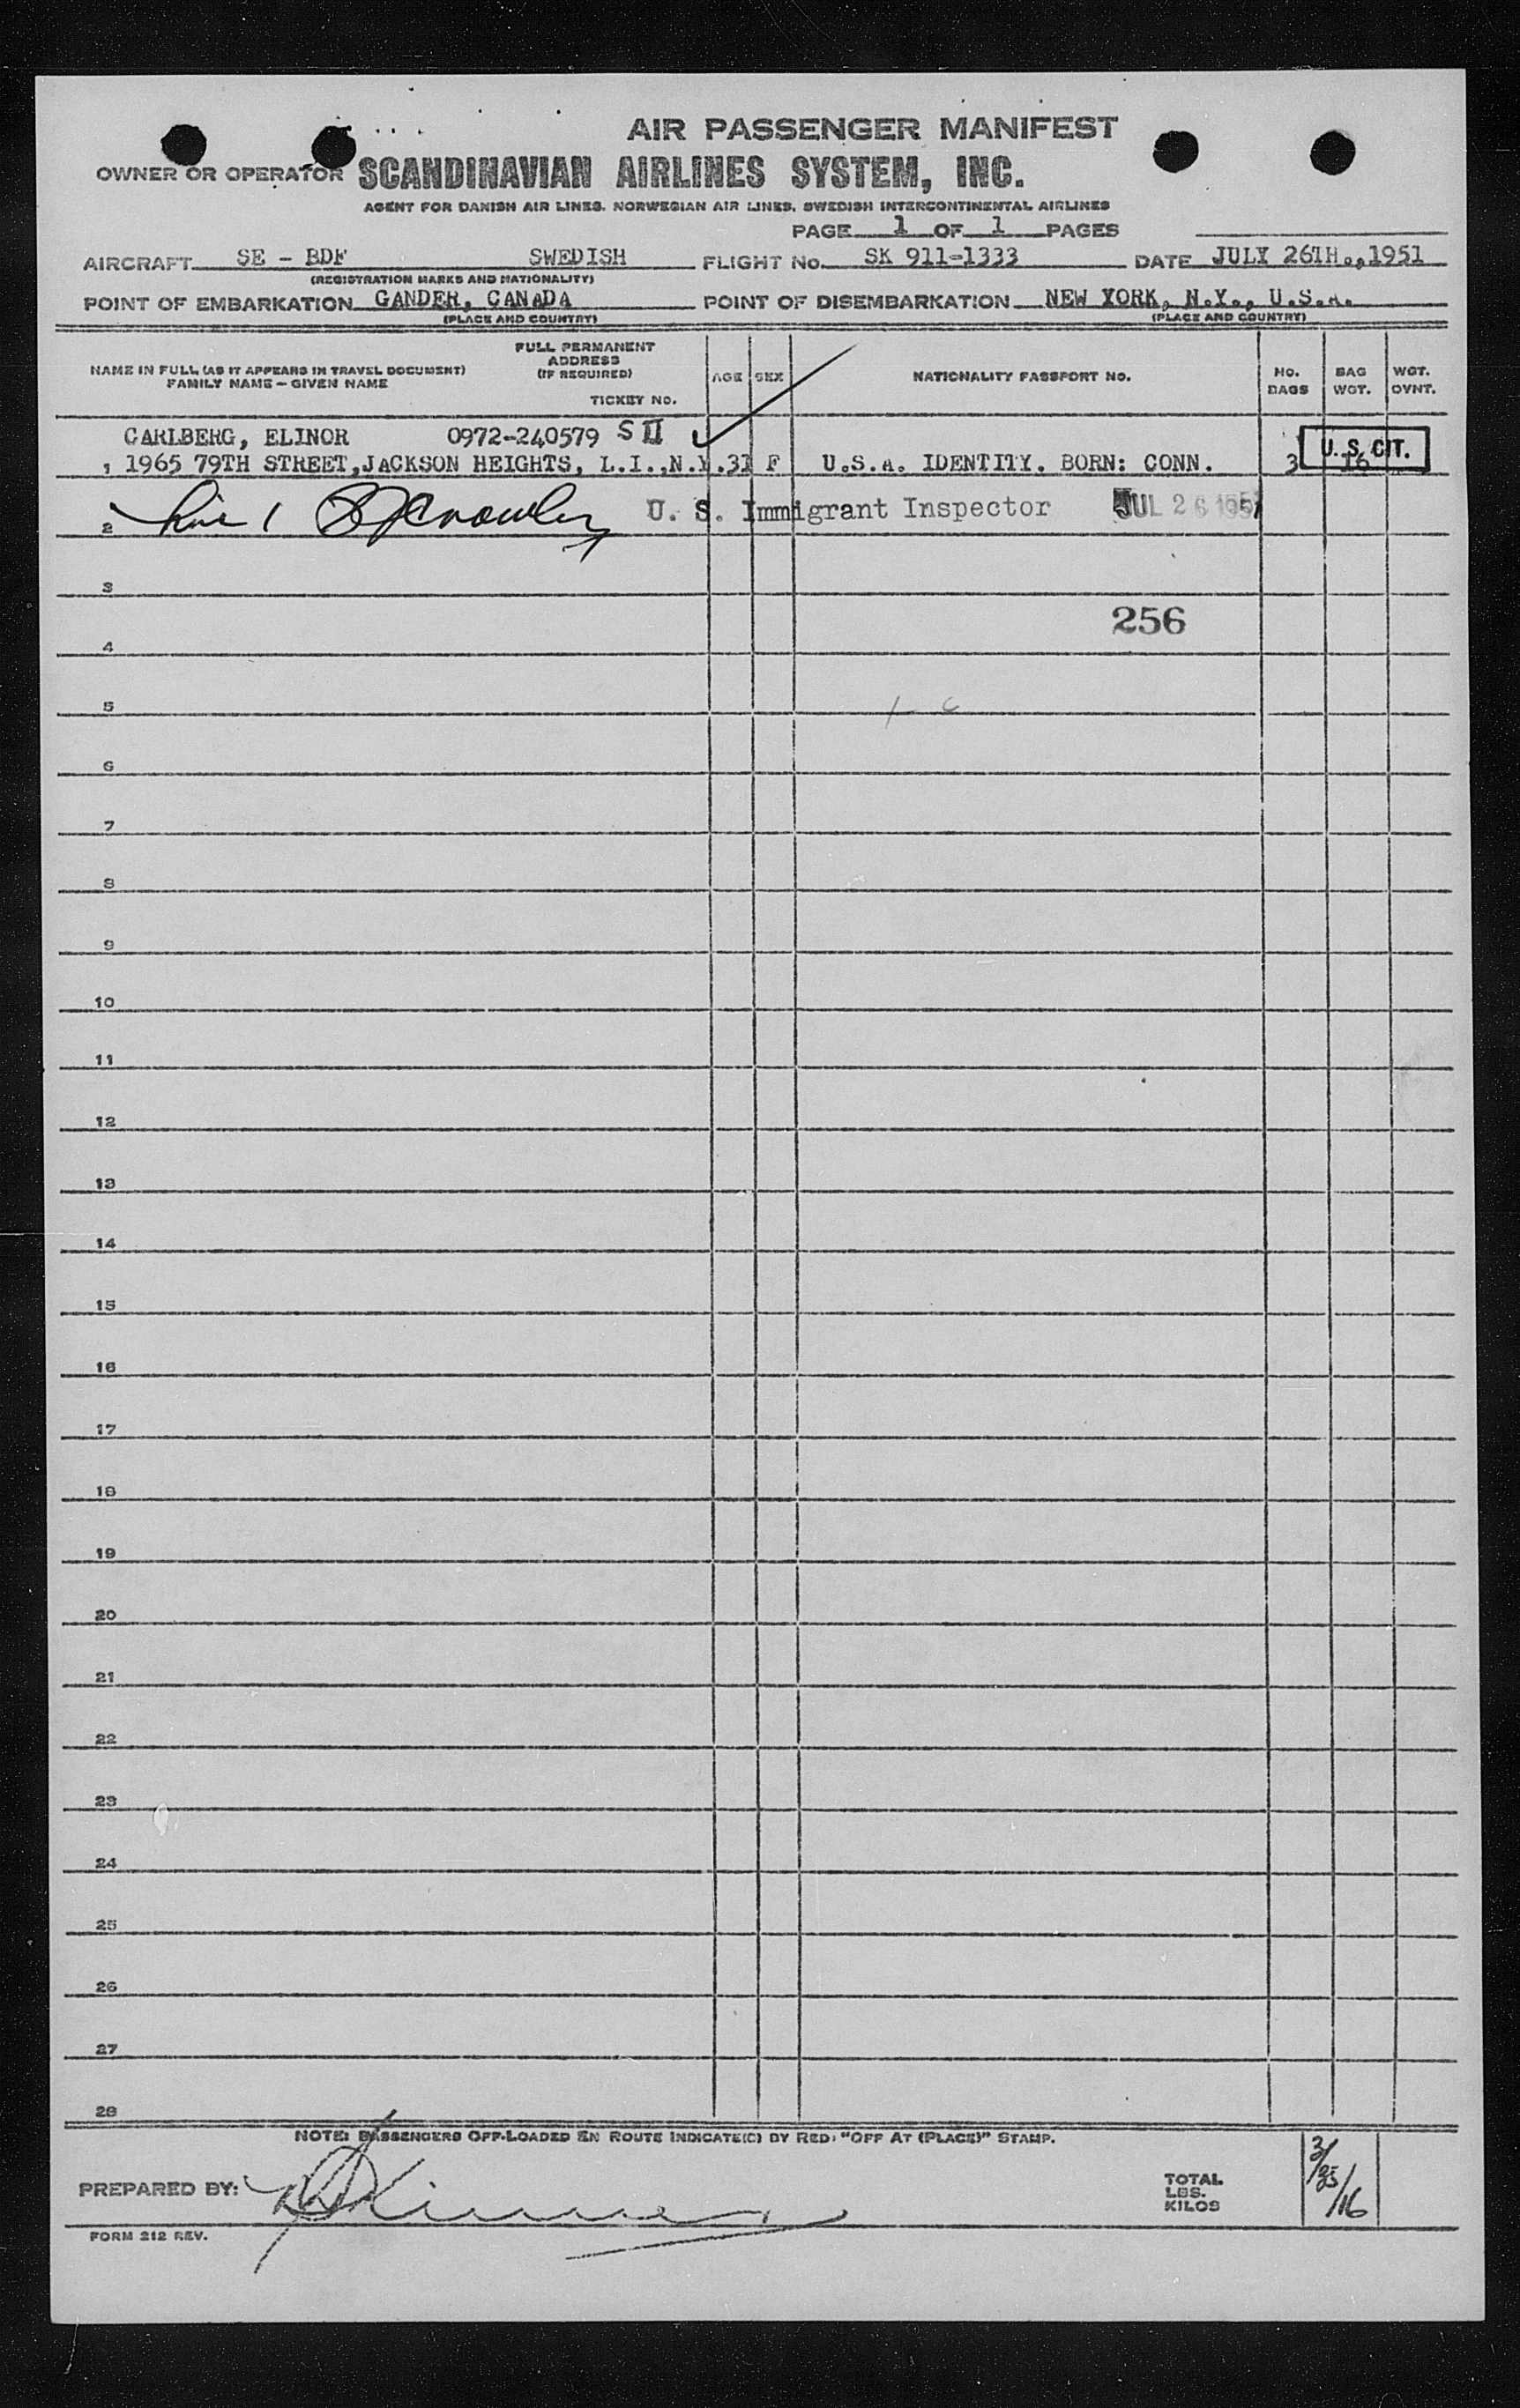 AIR PASSENGER MANIFEST
OWNER OR OPERATOR SCANDINAVIAN AIRLINES SYSTEM, INC.
AGENT FOR DANISH AIR LINES. NORWEGIAN AIR LINES. SWEDISH INTERCONTINENTAL AIRLINES
PAGE 1 OF 1 PAGES
AIRCRAFT SE - BDF SWEDISH FLIGHT No. SK 911-1333 DATE JULY 26TH.,1951
(REGISTRATION MARKS AND NATIONALITY)
POINT OF EMBARKATION GANDER, CANADA POINT OF DISEMBARKATION NEW YORK, N.Y., U.S.A.
(PLACE AND COUNTRY) (PLACE AND COUNTRY)
NAME IN FULL (AS IT APPEARS IN TRAVEL DOCUMENT)
FAMILY NAME - GIVEN NAME
FULL PERMANENT
ADDRESS
(IF REQUIRED)
TICKET NO.
AGE SEX NATIONALITY PASSPORT NO. NO. BAGS BAG WGT. WGT. OVNT.
CARLBERG, ELINOR 0972-240579 S II
1 1965 79TH STREET,JACKSON HEIGHTS, L.I.,N.Y.31 F U.S.A. IDENTITY. BORN: CONN. 3 16
U.S. CIT.
2 line 1 U. S. Immigrant Inspector JUL 26 1951
3
256
4
5
6
7
8
9
10
11
12
13
14
15
16
17
18
19
20
21
22
23
24
25
26
27
28
NOTE: PASSENGERS OFF-LOADED EN ROUTE INDICATE(C) BY RED: "OFF AT (PLACE)" STAMP.
PREPARED BY:
TOTAL
LBS.
KILOS
3/35/16
FORM 212 REV.